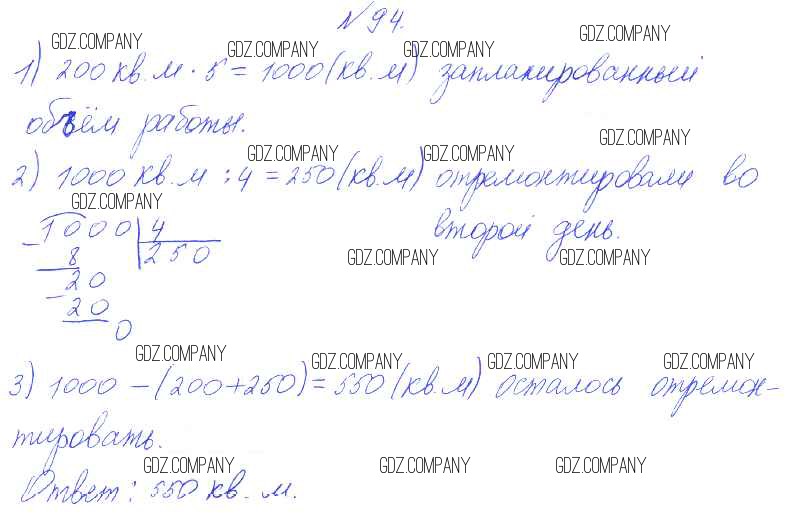 № 94.
GDZ.COMPANY GDZ.COMPANY GDZ.COMPANY GDZ.COMPANY
1) 200 кв. м · 5 = 1000 (кв. м) запланированный
объём работы.
GDZ.COMPANY GDZ.COMPANY GDZ.COMPANY
2) 1000 кв. м : 4 = 250 (кв. м) отремонтировали во
втором день.
GDZ.COMPANY
1000 4
- 8 250
GDZ.COMPANY GDZ.COMPANY
20
- 20
0
GDZ.COMPANY GDZ.COMPANY GDZ.COMPANY GDZ.COMPANY
3) 1000 - (200+250) = 550 (кв. м) осталось отремон-
тировать.
GDZ.COMPANY GDZ.COMPANY GDZ.COMPANY
Ответ: 550 кв. м.